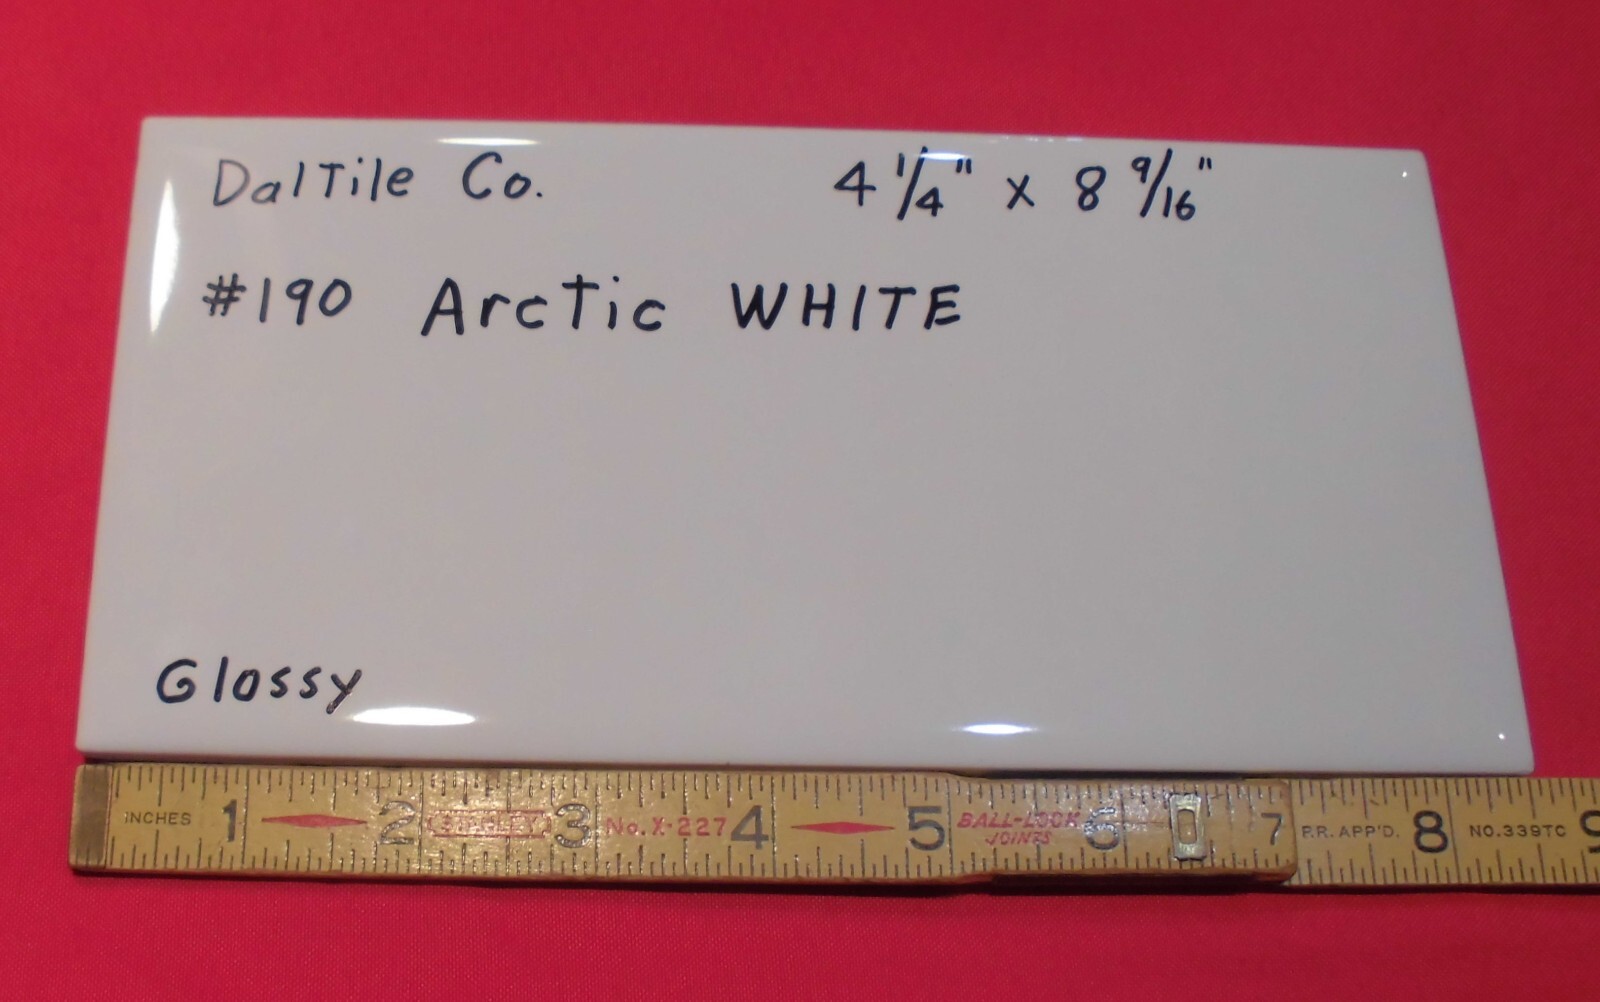 DalTile Co. 4 1/4" x 8 9/16"
#190 Arctic WHITE
Glossy
INCHES 1 2 STANLEY 3 No. X-227 4 5 BALL-LOCK JOINTS 6 7 P.R. APP'D. 8 NO.339TC 9